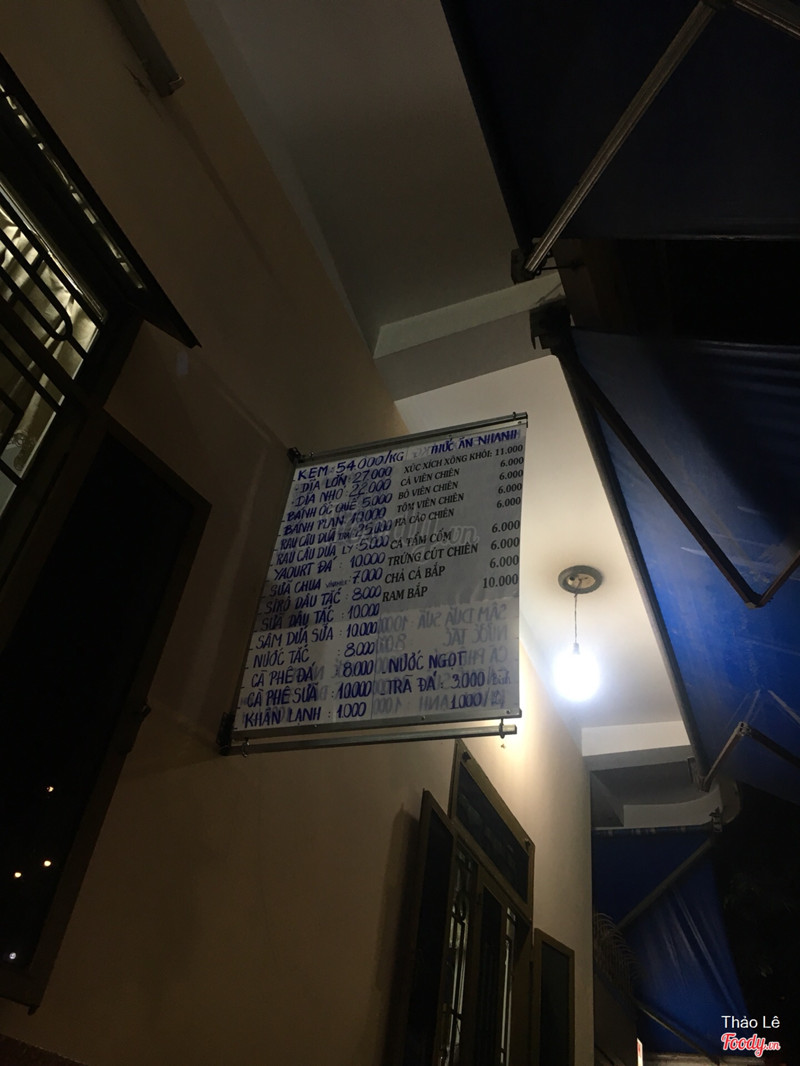 KEM: 54000/KG
- DĨA LỚN: 27000
- DĨA NHỎ: 22000
BÁNH ỐC QUẾ 5000
BÁNH PLAN
RAU CÂU DỪA
RAU CÂU DỪA LY 5000
YAOURT ĐÁ : 10.000
SỮA CHUA 7000
SIRÔ DẦU TẮC : 8000
SỮA DÂU TẮC : 10.000
SÂM DỨA SỮA : 10.000
NƯỚC TẮC : 8000
CÀ PHÊ ĐÁ : 8.000
CÀ PHÊ SỮA : 10.000
KHĂN LẠNH : 1.000
THỨC ĂN NHANH
XÚC XÍCH XÔNG KHÓI: 11.000
CÁ VIÊN CHIÊN 6.000
BÒ VIÊN CHIÊN 6.000
TÔM VIÊN CHIÊN 6.000
HÁ CẢO CHIÊN
CÁ TẨM CỐM 6.000
TRỨNG CÚT CHIÊN 6.000
CHẢ CÁ BẮP 6.000
RAM BẮP 10.000
NƯỚC NGỌT
TRÀ ĐÁ : 3.000
1.000/
Thảo Lê
Foody.vn